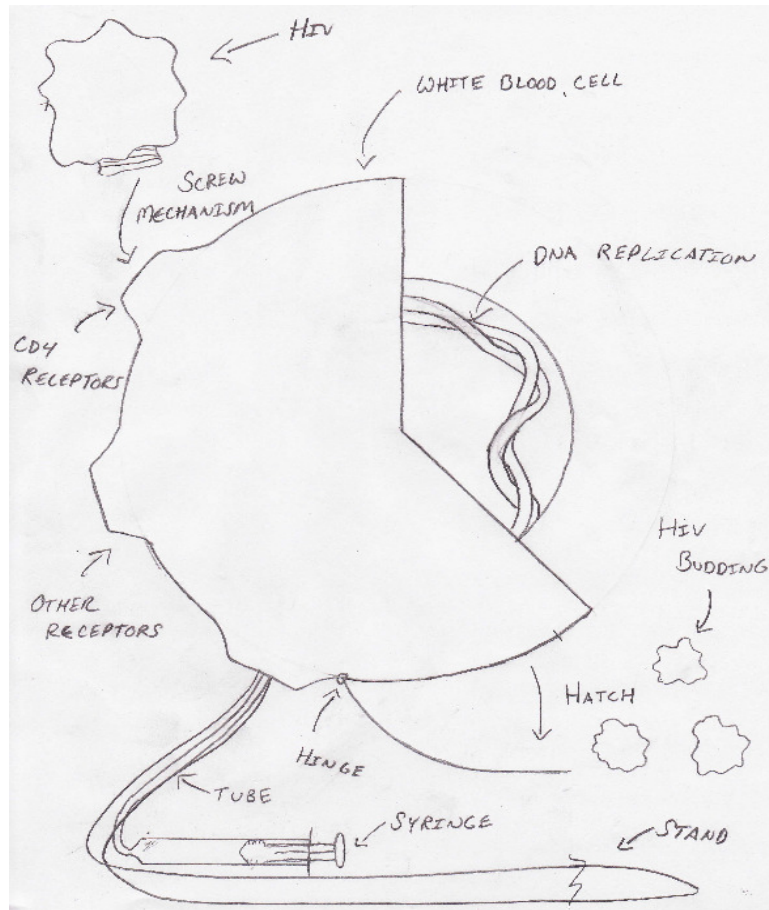 HIV
WHITE BLOOD CELL
SCREW
MECHANISM
DNA REPLICATION
CD4
RECEPTORS
HIV
BUDDING
OTHER
RECEPTORS
HATCH
HINGE
TUBE
SYRINGE
STAND